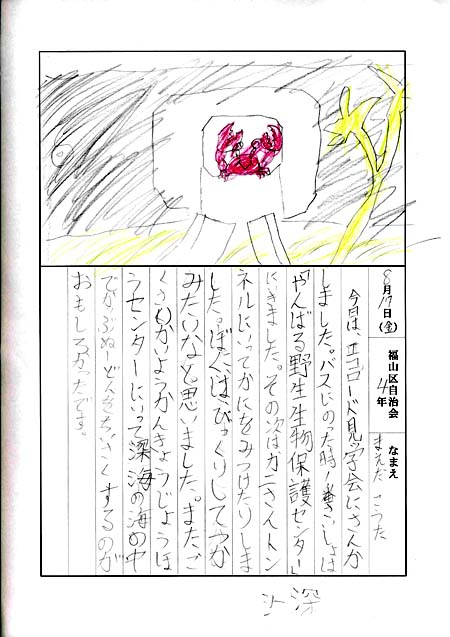 8月17日(金)
福山区自治会
4年
なまえ
まえだ こうた
今日は、エコロード見学会にさんか
しました。バスにのった時、さいしょは
「やんばる野生生物保護センター」
にいきました。その次はカニさんトン
ネルにいてかにをみつけたりしま
した。ぼくはびっくりしてつか
みたいなと思いました。またご
くさいかいようかんきょうじょうほ
うセンターにいって深海の海の中
でがぶぬーどんきちいさくするのが
おもしろかったです。
深